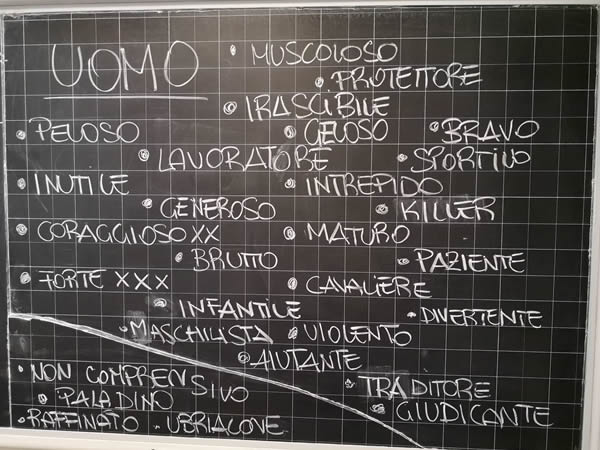 UOMO
• MUSCOLOSO
• PROTETTORE
• IRASCIBILE
• PELOSO • GELOSO • BRAVO
• LAVORATORE • SPORTIVO
• INUTILE • INTREPIDO
• GENEROSO • KILLER
• CORAGGIOSO XX • MATURO
• BRUTTO • PAZIENTE
• FORTE XXX • CAVALIERE
• INFANTILE • DIVERTENTE
• MASCHILISTA • VIOLENTO
• AIUTANTE
• NON COMPRENSIVO • TRADITORE
• PALADINO • GIUDICANTE
• RAFFINATO • UBRIACONE